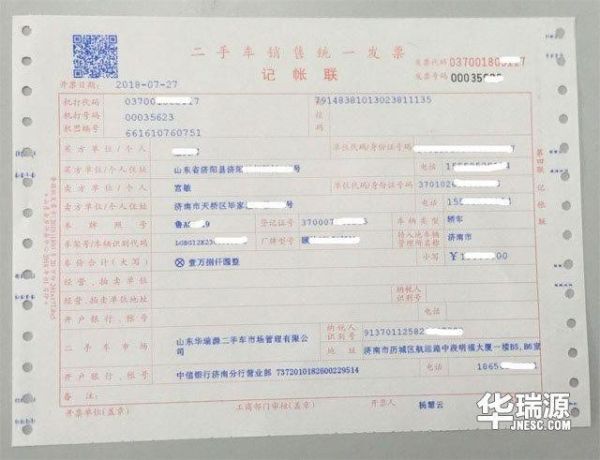 二手车销售统一发票
记帐联
发票代码 037001800 17
发票号码 00035623
开票日期: 2018-07-27
机打代码 03700 17
机打号码 00035623
机器编号 661610760751
税控码 79148381013023811135
买方单位/个人 单位代码/身份证号码
买方单位/个人住址 山东省济阳县济阳 号 电话
卖方单位/个人 宫敏 单位代码/身份证号码 370102
卖方单位/个人住址 济南市天桥区毕家 号 电话 15
车牌照号 鲁A 9 登记证号 37000 车辆类型 轿车
车架号/车辆识别代码 厂牌型号 转入地车辆管理所名称 济南市
车价合计(大写) ⊗壹万捌仟圆整 小写 ¥1
经营、拍卖单位 纳税人识别号
经营、拍卖单位地址 电话
开户银行、帐号
二手车市场 山东华瑞源二手车市场管理有限公司 纳税人识别号 9137011258
地址 济南市历城区航运路中段明福大厦一楼B5,B6室
开户银行、帐号 中信银行济南分行营业部 7372010182600229514 电话 1865
备注:
开票单位(盖章) 工商部门审核(盖章) 开票人 杨慧云
第四联 记帐联
华瑞源
JNESC.COM